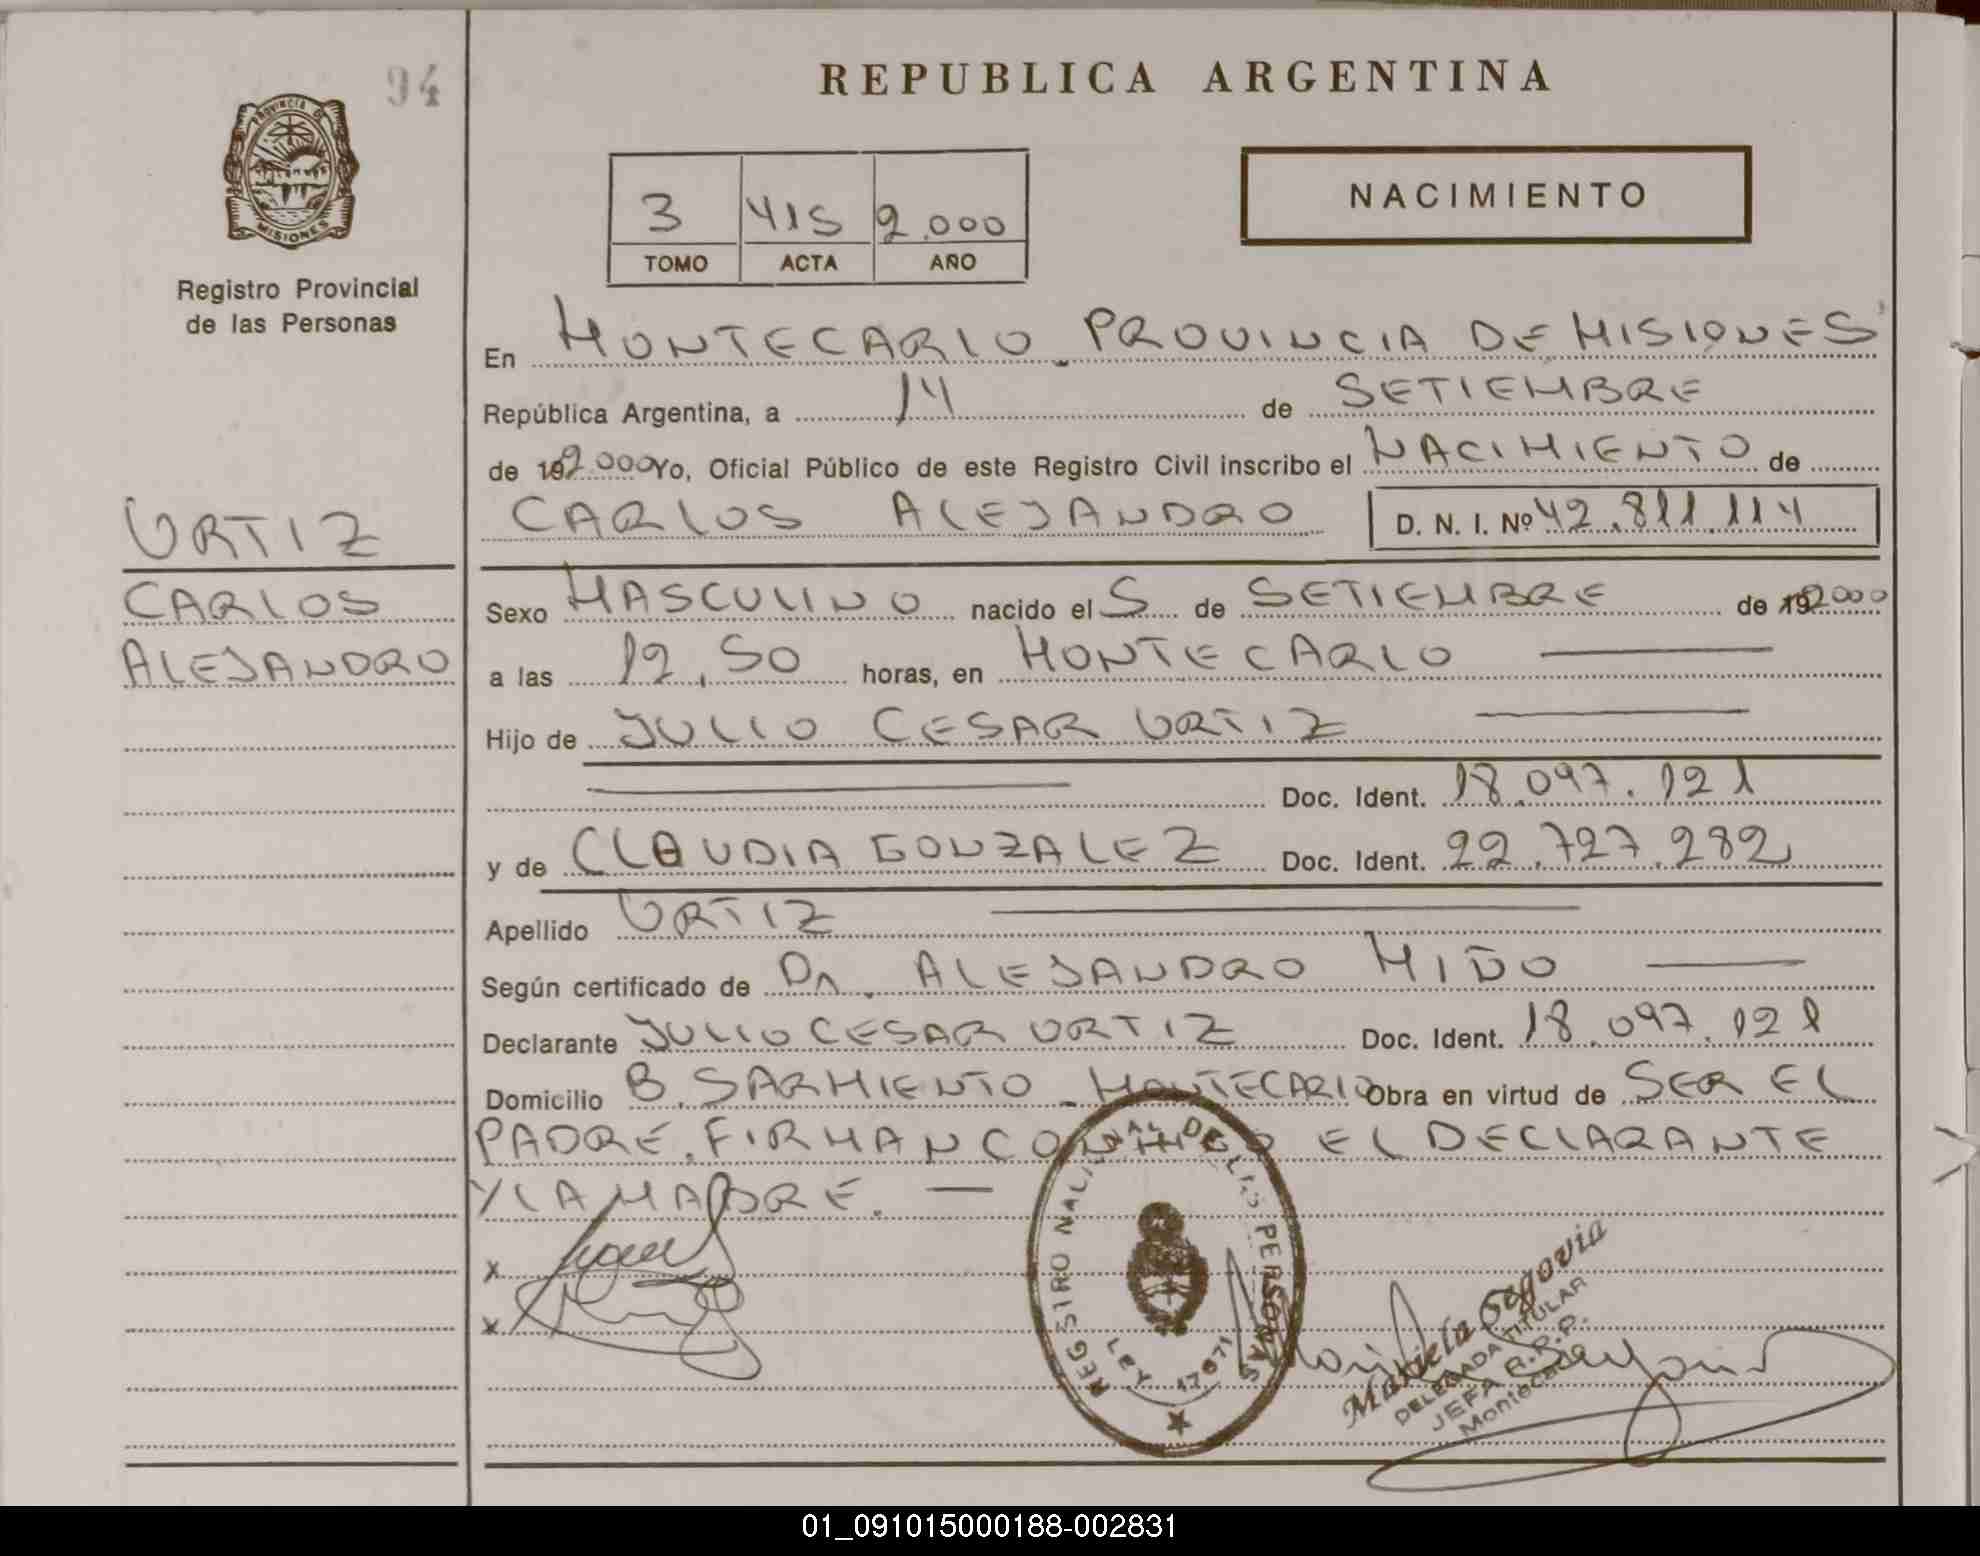 94
PROVINCIA DE
MISIONES
Registro Provincial
de las Personas
REPUBLICA ARGENTINA
3 415 2.000
TOMO ACTA AÑO
NACIMIENTO
En MONTECARLO - PROVINCIA DE MISIONES
República Argentina, a 14 de SETIEMBRE
de 192.000 Yo, Oficial Público de este Registro Civil inscribo el NACIMIENTO de
CARLOS ALEJANDRO D. N. I. Nº 42.811.114
ORTIZ
CARLOS
ALEJANDRO
Sexo MASCULINO nacido el 5 de SETIEMBRE de 192000
a las 12,50 horas, en MONTECARLO
Hijo de JULIO CESAR ORTIZ
Doc. Ident. 18.097.121
y de CLAUDIA GONZALEZ Doc. Ident. 22.727.282
Apellido ORTIZ
Según certificado de Dr. ALEJANDRO MIÑO
Declarante JULIO CESAR ORTIZ Doc. Ident. 18.097.121
Domicilio B. SARMIENTO - MONTECARLO Obra en virtud de SER EL
PADRE. FIRMAN CONMIGO EL DECLARANTE
Y LA MADRE. —
x
x
REGISTRO NACIONAL DE LAS PERSONAS
LEY 17671
Mariela Segovia
DELEGADA TITULAR
JEFA R.P.P.
Montecarlo
01_091015000188-002831